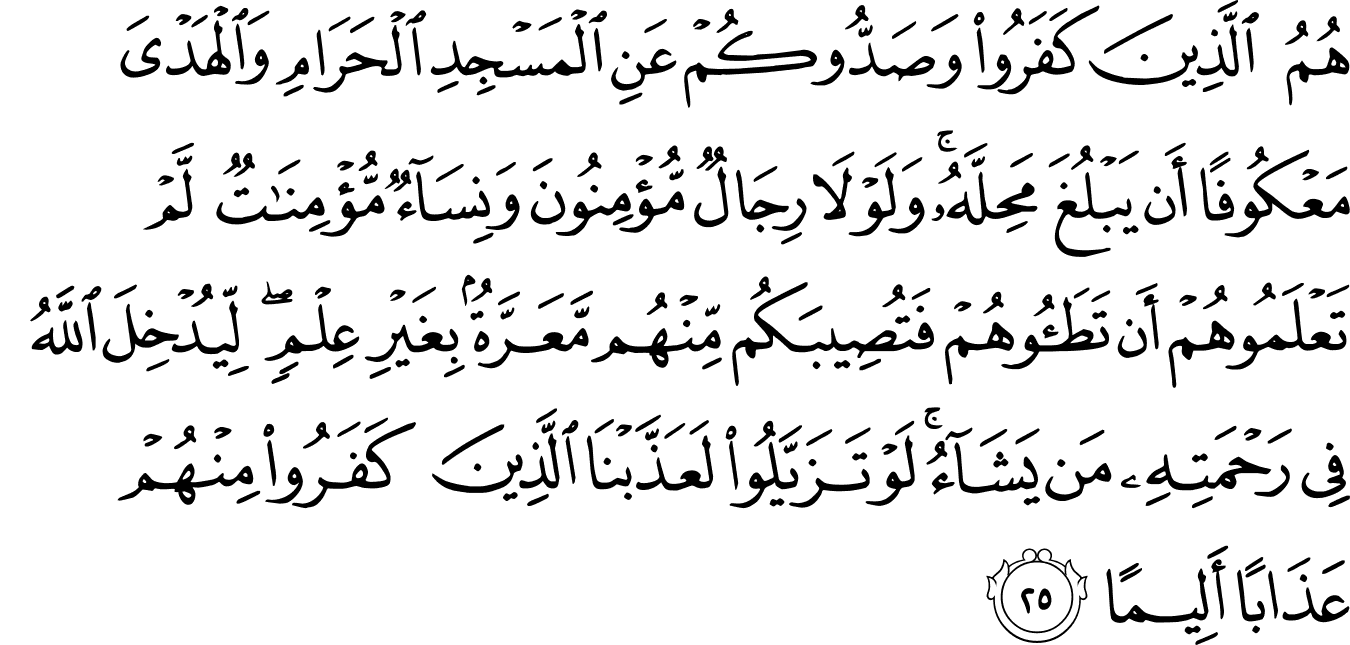 هُمُ ٱلَّذِينَ كَفَرُوا۟ وَصَدُّوكُمْ عَنِ ٱلْمَسْجِدِ ٱلْحَرَامِ وَٱلْهَدْىَ
مَعْكُوفًا أَن يَبْلُغَ مَحِلَّهُۥ ۚ وَلَوْلَا رِجَالٌ مُّؤْمِنُونَ وَنِسَآءٌ مُّؤْمِنَٰتٌ لَّمْ
تَعْلَمُوهُمْ أَن تَطَـُٔوهُمْ فَتُصِيبَكُم مِّنْهُم مَّعَرَّةٌۢ بِغَيْرِ عِلْمٍ ۖ لِّيُدْخِلَ ٱللَّهُ
فِى رَحْمَتِهِۦ مَن يَشَآءُ ۚ لَوْ تَزَيَّلُوا۟ لَعَذَّبْنَا ٱلَّذِينَ كَفَرُوا۟ مِنْهُمْ
عَذَابًا أَلِيمًا ٢٥